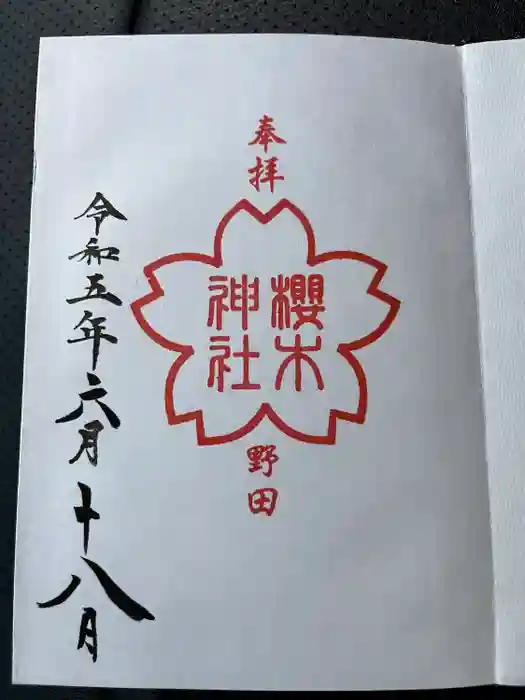 奉拝
櫻木
神社
野田
令和五年六月十八月